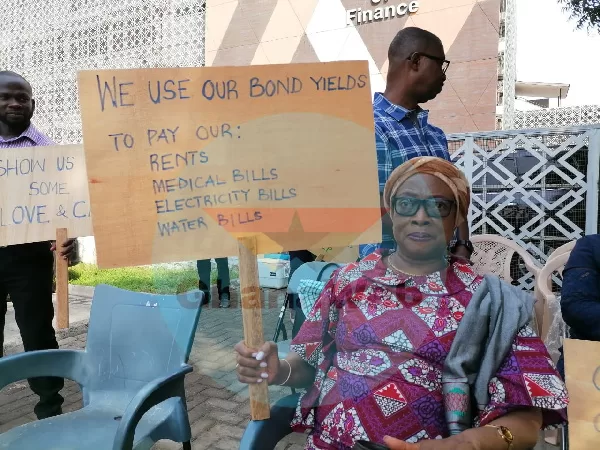 Finance
WE USE OUR BOND YIELDS
TO PAY OUR:
RENTS
MEDICAL BILLS
ELECTRICITY BILLS
WATER BILLS
SHOW US
SOME
LOVE &